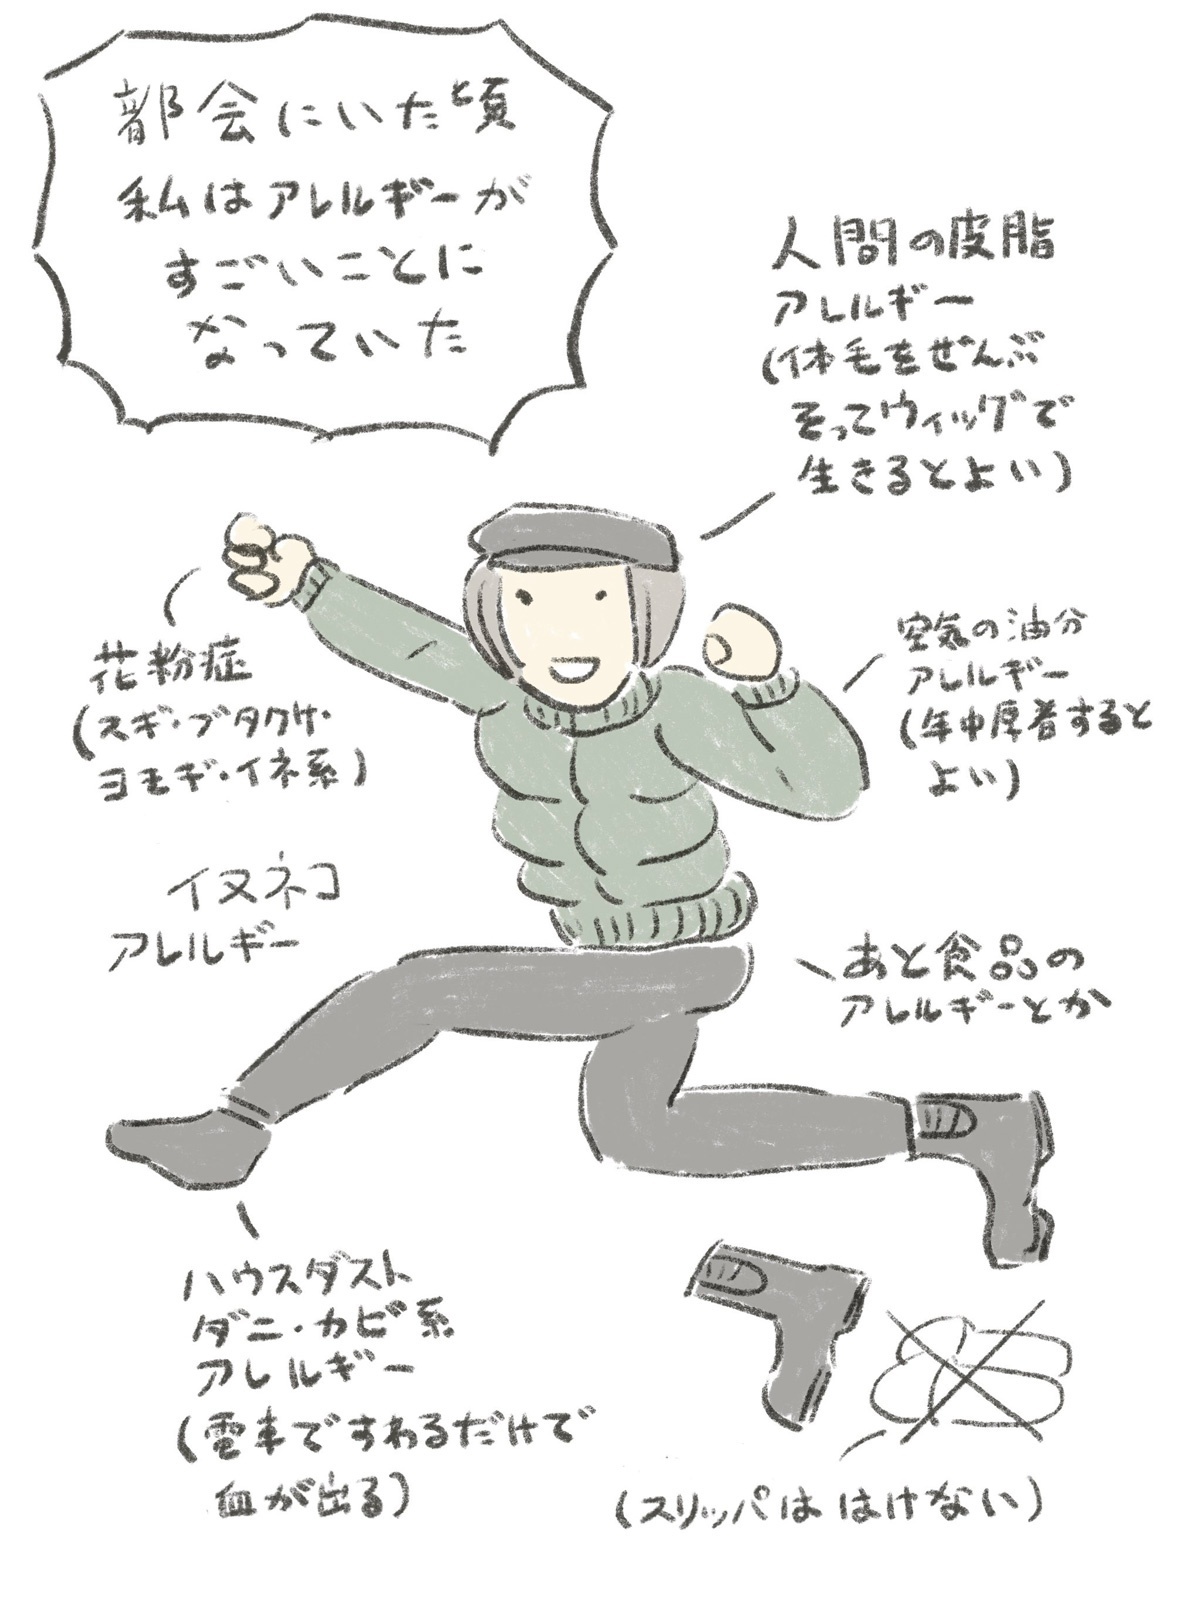 都会にいた頃
私はアレルギーが
すごいことに
なっていた
人間の皮脂
アレルギー
(体毛をぜんぶ
そってウィッグで
生きるとよい)
花粉症
(スギ・ブタクサ・
ヨモギ・イネ系)
空気の油分
アレルギー
(年中厚着すると
よい)
イヌネコ
アレルギー
あと食品の
アレルギーとか
ハウスダスト
ダニ・カビ系
アレルギー
(電車ですわるだけで
血が出る)
(スリッパは はけない)